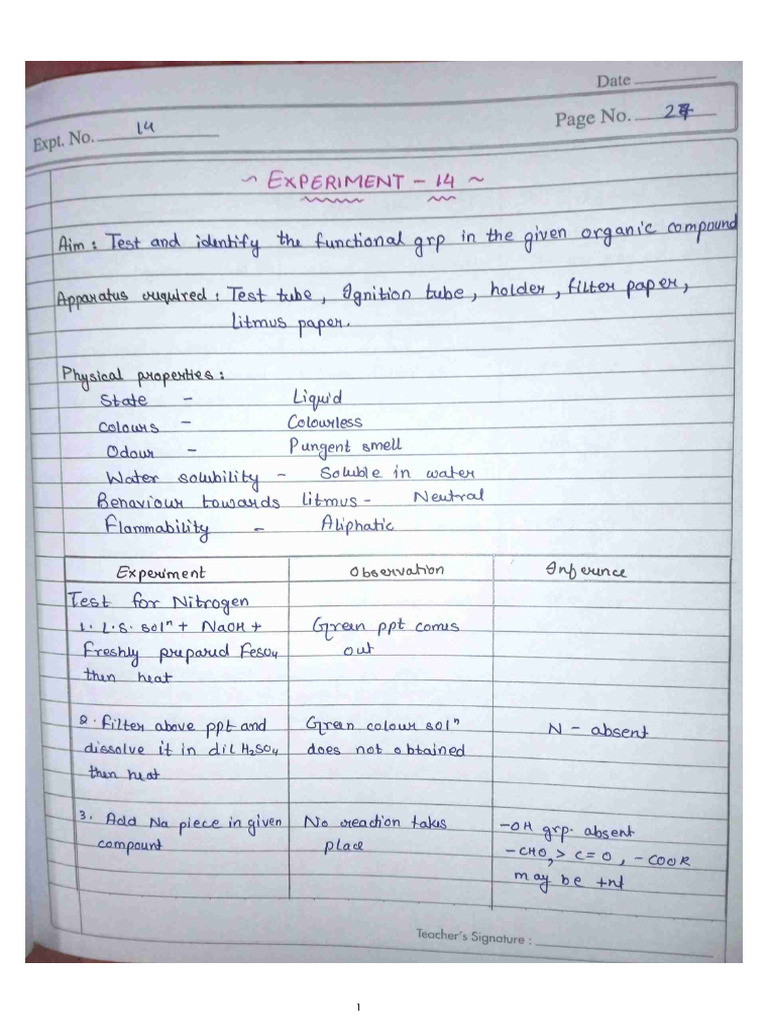 Date
Expt. No. 14
Page No. 27
~ EXPERIMENT - 14 ~
Aim : Test and identify the functional grp in the given organic compound
Apparatus required : Test tube, Ignition tube, holder, filter paper,
litmus paper.
Physical properties :
State - Liquid
Colours - Colourless
Odour - Pungent smell
Water solubility - Soluble in water
Behaviour towards litmus - Neutral
Flammability - Aliphatic
Experiment Observation Inference
Test for Nitrogen
1. L.S. solⁿ + NaOH + Green ppt comes
Freshly prepared FeSO₄ out
then heat
2. Filter above ppt and Green colour solⁿ N - absent
dissolve it in dil H₂SO₄ does not obtained
then heat
3. Add Na piece in given No reaction takes -OH grp. absent
compount place -CHO, >C=O, -COOR
may be +nt
Teacher's Signature :
1